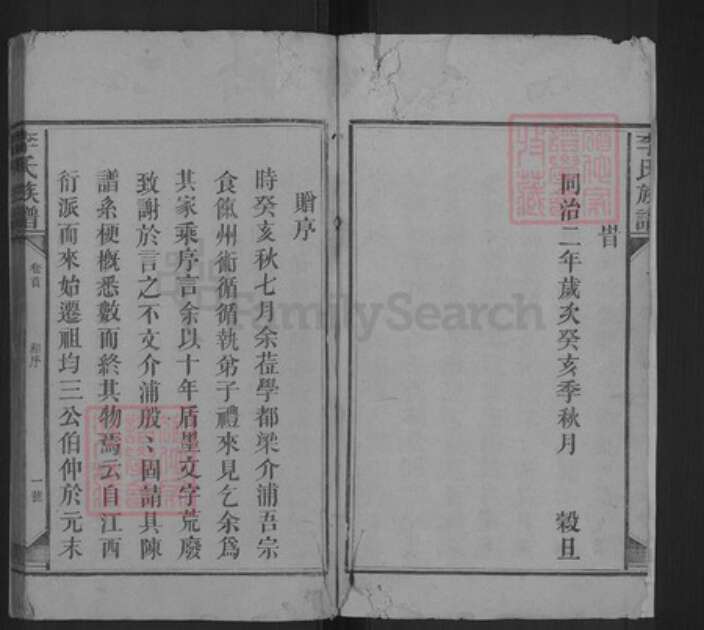 李氏族譜
旹
同治二年歲次癸亥季秋月　穀旦
贈序
時癸亥秋七月余蒞學都梁介浦吾宗
食餼州術循循執弟子禮來見乞余爲
其家乘序言余以十年盾墨文字荒廢
致謝於言之不文介浦殷〻固請具陳
譜系梗概悉數而終其物焉云自江西
衍派而來始遷祖均三公伯仲於元末
李氏族譜
卷首
贈序
一號
FamilySearch